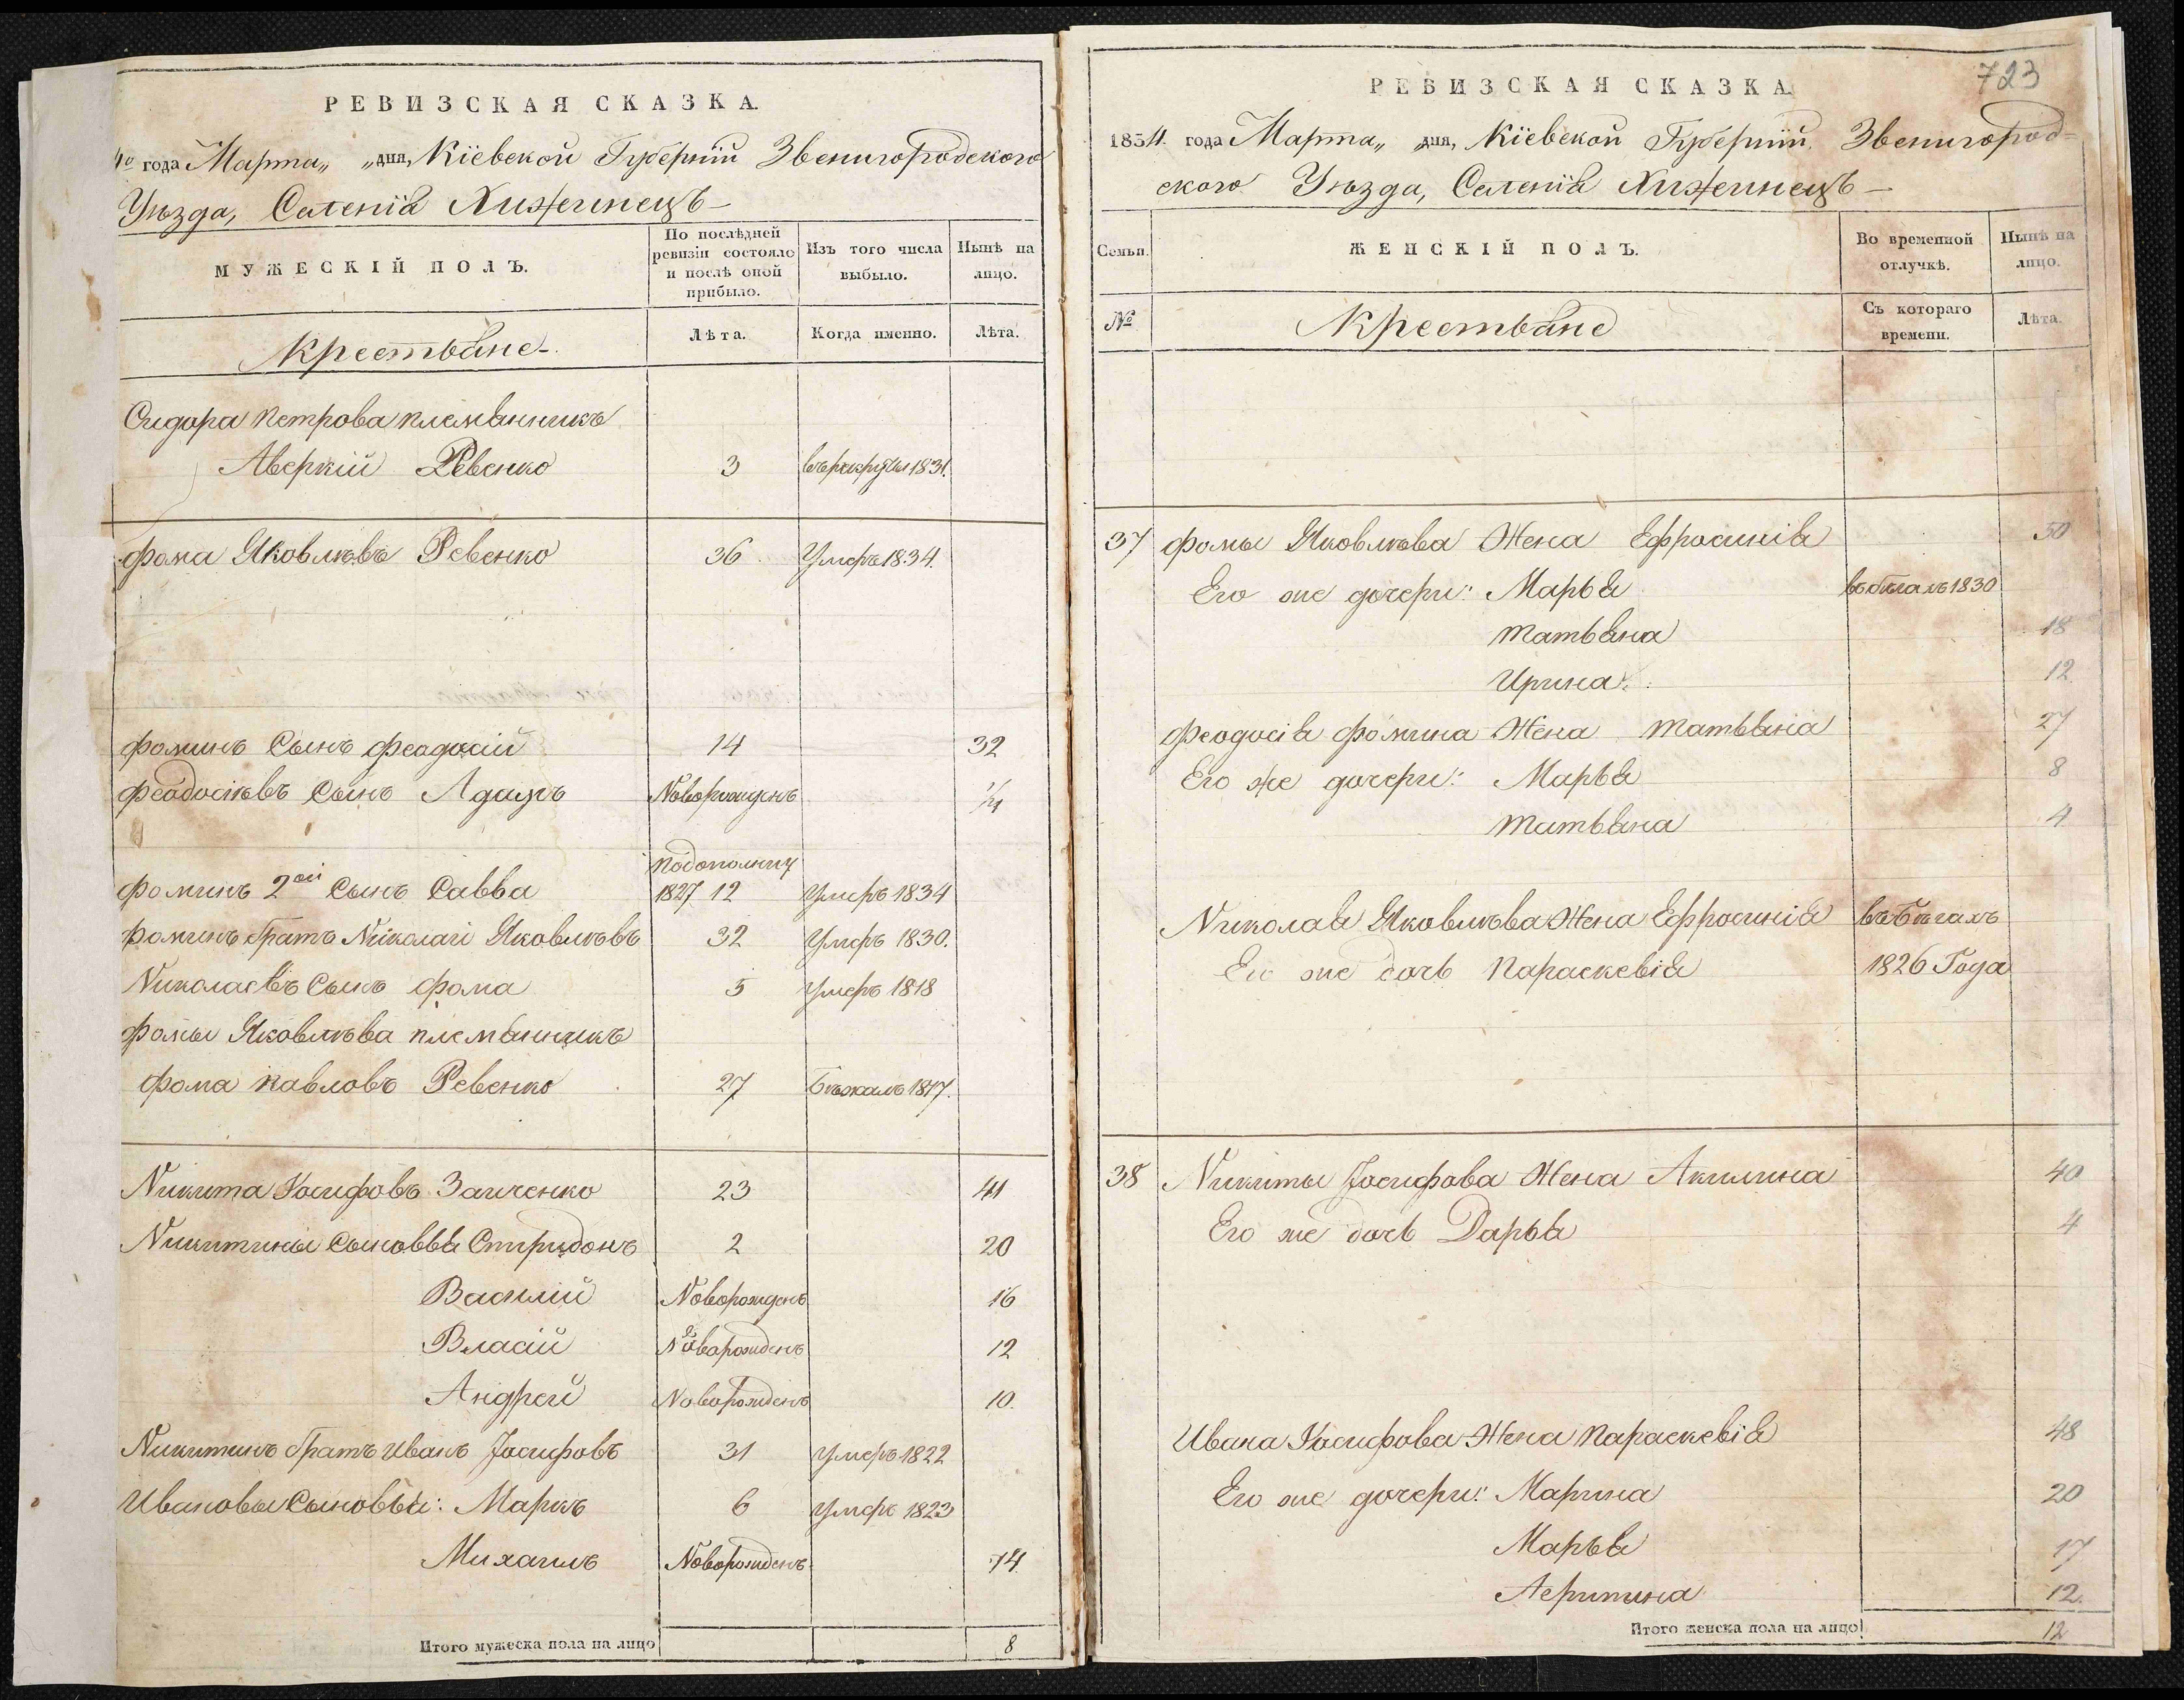 РЕВИЗСКАЯ СКАЗКА.
4º года Марта „ „ дня, Кіевской Губерніи Звенигородского
Уѣзда, Селенія Хижинецъ
МУЖЕСКІЙ ПОЛЪ.
По послѣдней ревизіи состояло и послѣ оной прибыло.
Изъ того числа выбыло.
Нынѣ на лицо.
Крестьяне
Лѣта.
Когда именно.
Лѣта.
Сидора Петрова племянникъ
Аверкій Ревенко 3 въ рекруты 1831.
Фома Яковлѣвъ Ревенко 36 Умеръ 1834.
Фоминъ Сынъ Феодосій 14 32
Феодосіѣвъ Сынъ Новорожденъ
Подополнит
Фоминъ 2ой Сынъ Савва 1827 12 Умеръ 1834
Фоминъ братъ Николай Яковлѣвъ 32 Умеръ 1830.
Николаевъ Сынъ Фома 5 Умеръ 1818
Фомы Яковлѣва племянникъ
Фома Павловъ Ревенко 27 Бѣжалъ 1817.
Никита Іосифовъ Заиченко 23 41
Никитины Сыновья Спиридонъ 2 20
Василій Новорожденъ 16
Власій Новорожденъ 12
Андрей Новорожденъ 10.
Никитинъ братъ Иванъ Іосифовъ 31 Умеръ 1822
Ивановы Сыновья: Маркъ 6 Умеръ 1823
Михаилъ Новорожденъ 14
Итого мужеска пола на лицо 8
723
РЕВИЗСКАЯ СКАЗКА.
1834. года Марта „ „ дня, Кіевской Губерніи, Звенигород=
ского Уѣзда, Селенія Хижинецъ —
Семьи.
ЖЕНСКІЙ ПОЛЪ.
Во временной отлучкѣ.
Нынѣ на лицо.
№
Крестьяне
Съ котораго времени.
Лѣта.
37 Фомы Яковлѣва Жена Ефросинія 50
Его же дочери: Марья въ бѣгахъ 1830
Татьяна 18
Ирина 12
Феодосія Фомина Жена Татьяна 27
Его же дочери: Марья 8
Татьяна 4
Николая Яковлѣва Жена Ефросинія въ Бѣгахъ
Его же дочь Параскевія 1826 Года
38 Никиты Іосифова Жена Акилина 40
Его же дочь Дарья 4
Ивана Іосифова Жена Параскевія 48
Его же дочери: Марина 20
Марья 17
12.
Итого женска пола на лицо 12